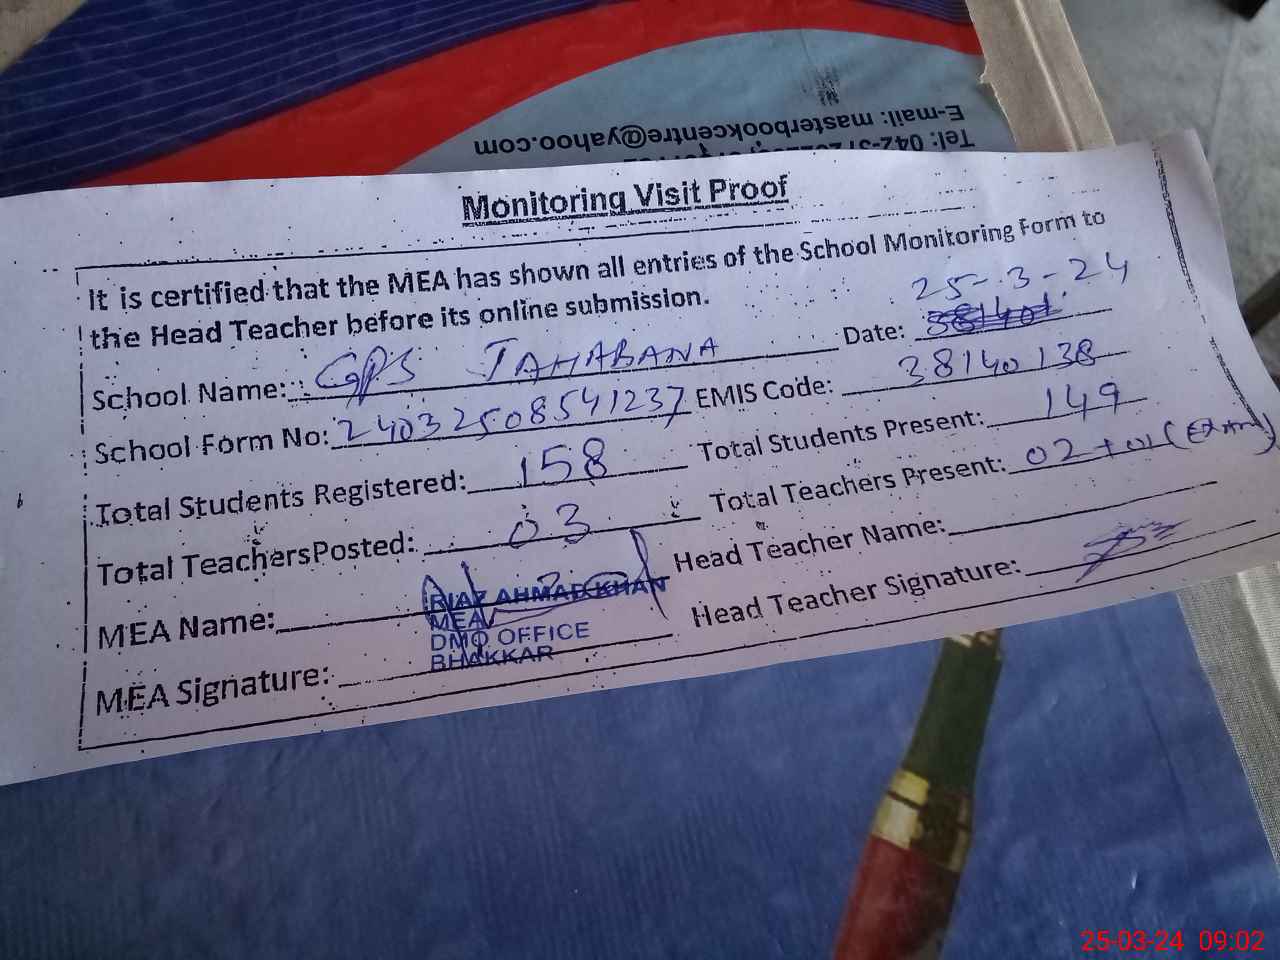 E-mail: masterbookcentre@yahoo.com
Monitoring Visit Proof
It is certified that the MEA has shown all entries of the School Monitoring Form to
the Head Teacher before its online submission.
School Name: GPS JAHABANA Date: 25-3-24
School Form No: 24032508541237 EMIS Code: 38140138
Total Students Registered: 158 Total Students Present: 149
Total Teachers Posted: 03 Total Teachers Present: 02+01 (Exam)
MEA Name: RIAZ AHMAD KHAN Head Teacher Name:
MEA
DMO OFFICE
BHAKKAR
MEA Signature: Head Teacher Signature:
25-03-24 09:02